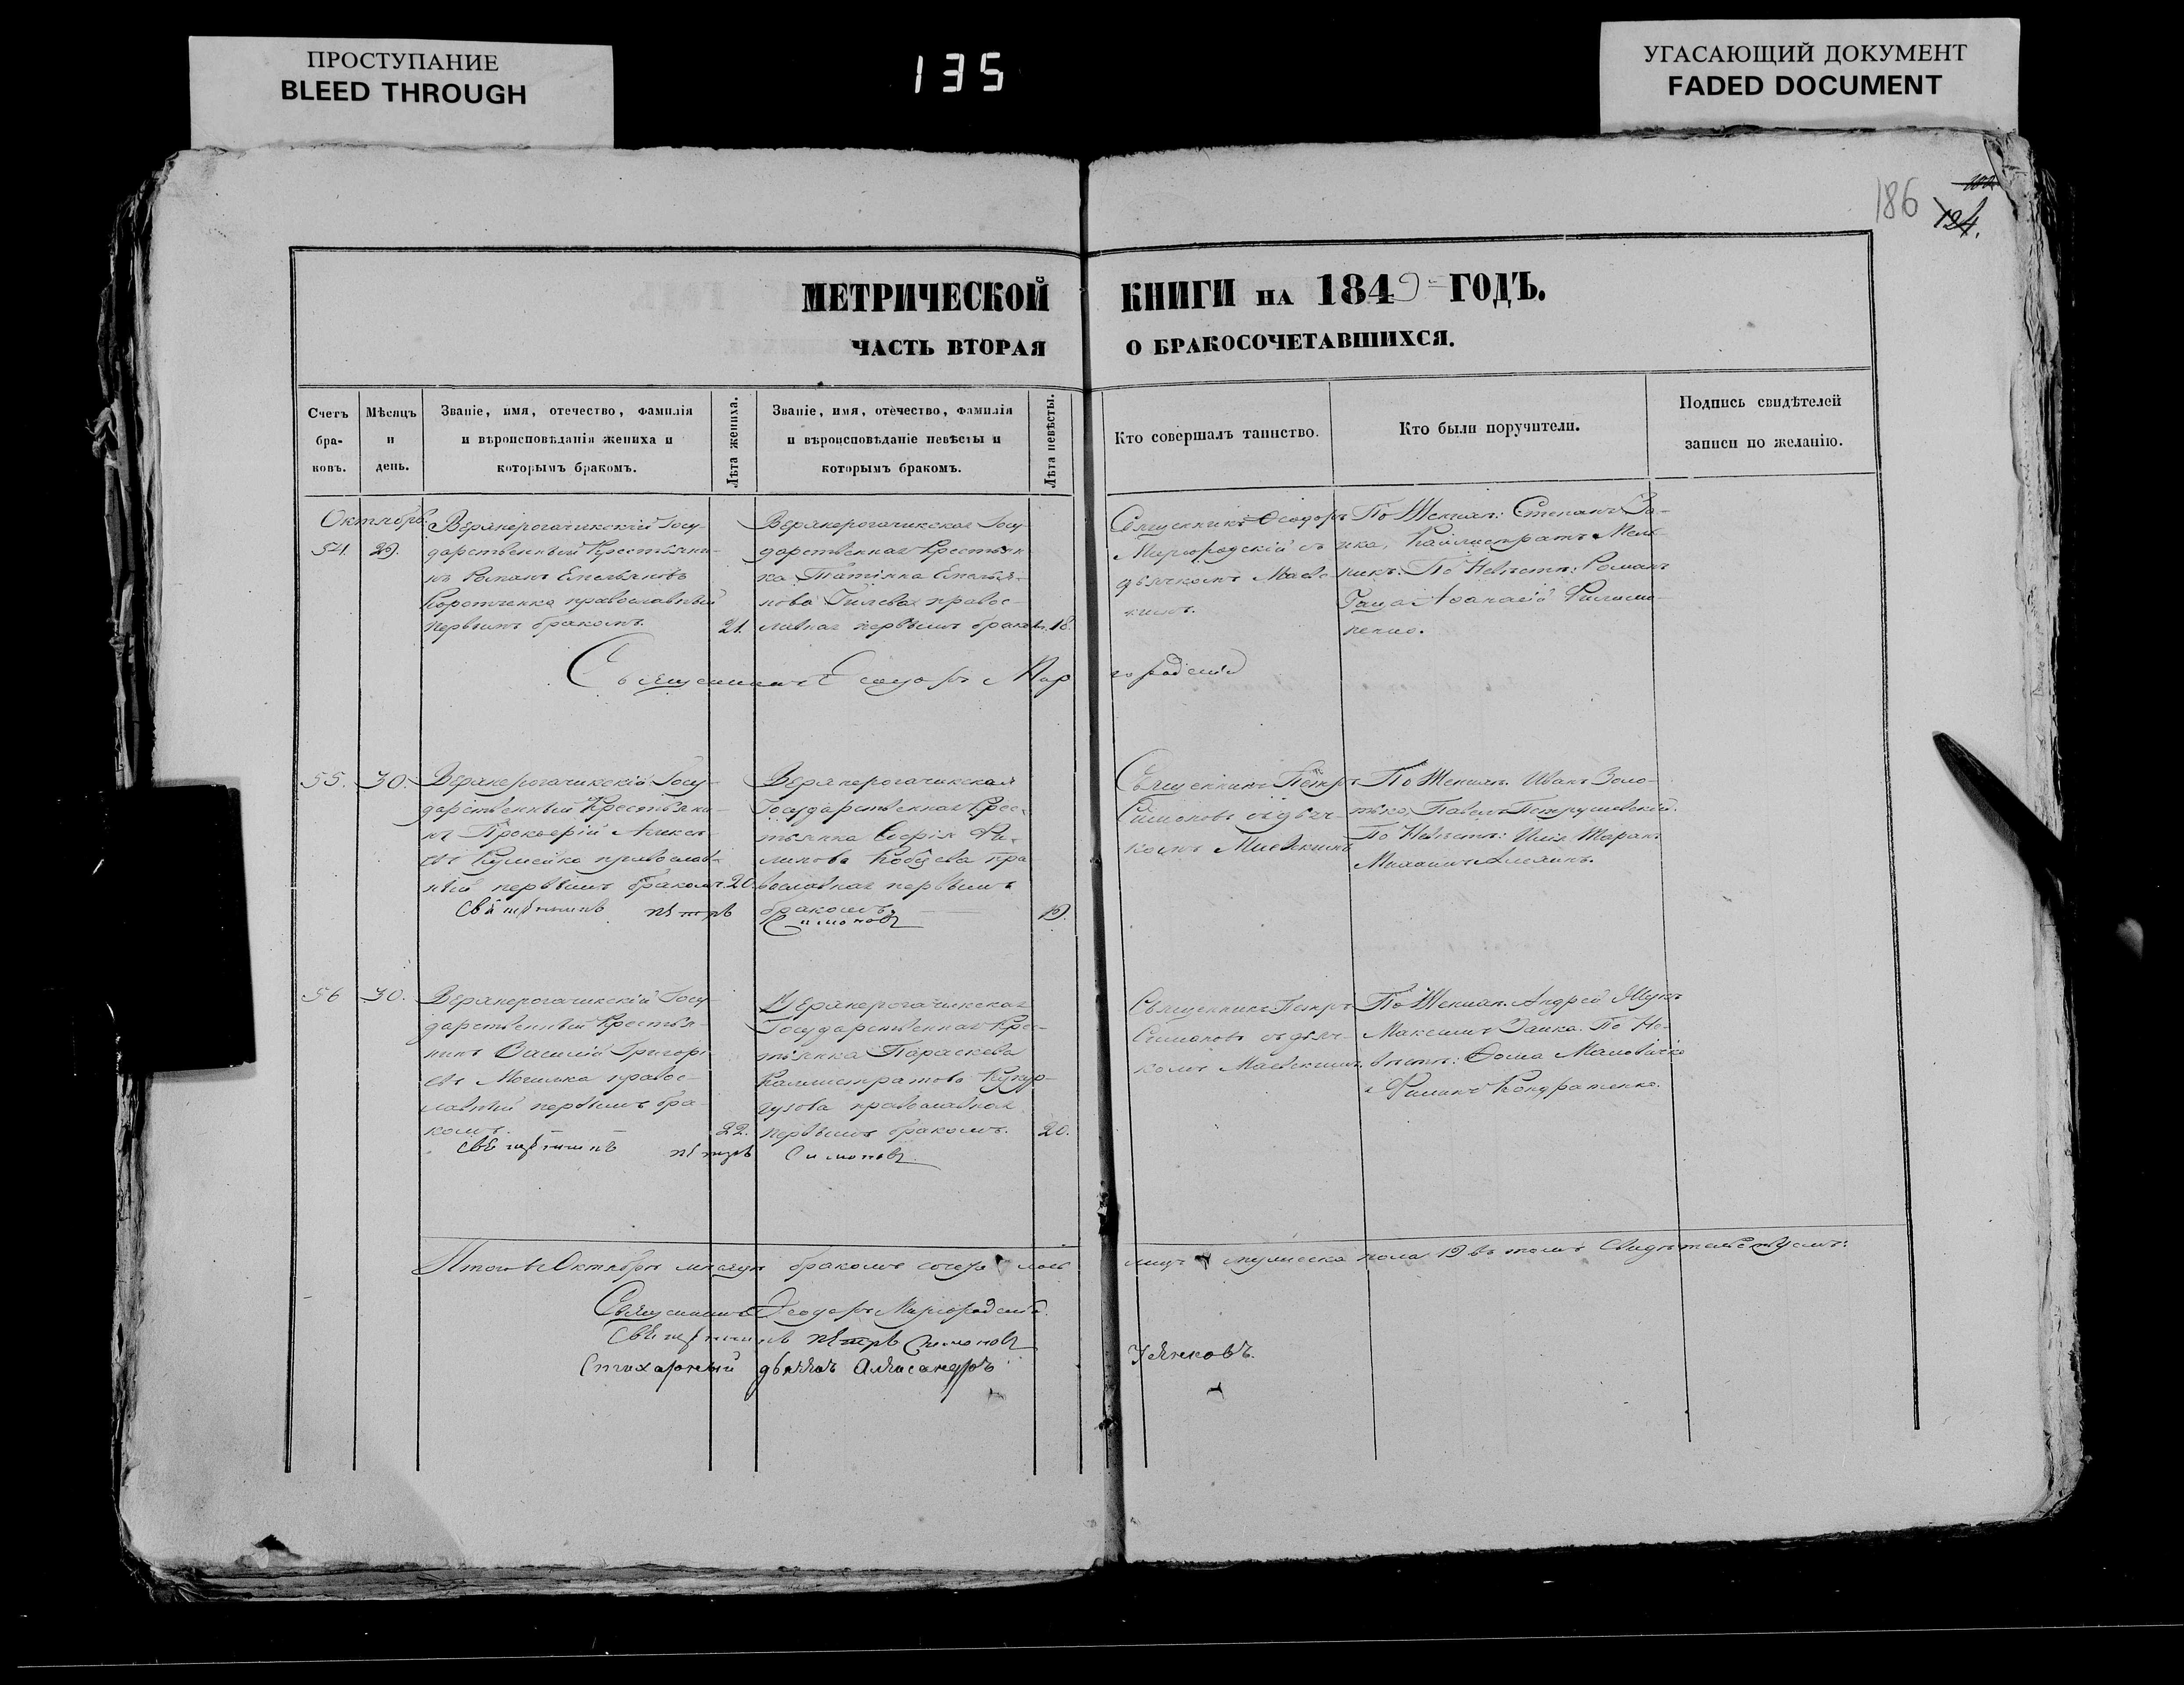 ПРОСТУПАНИЕ
BLEED THROUGH
135
УГАСАЮЩИЙ ДОКУМЕНТ
FADED DOCUMENT
186
124.
МЕТРИЧЕСКОЙ КНИГИ НА 1849 ГОДЪ.
ЧАСТЬ ВТОРАЯ О БРАКОСОЧЕТАВШИХСЯ.
Счетъ
бра-
ковъ.
Мѣсяцъ
и
день.
Званіе, имя, отечество, фамилія
и вѣроисповѣданія жениха и
которымъ бракомъ.
Лѣта жениха.
Званіе, имя, отечество, фамилія
и вѣроисповѣданіе невѣсты и
которымъ бракомъ.
Лѣта невѣсты.
Кто совершалъ таинство.
Кто были поручители.
Подпись свидѣтелей
записи по желанію.
Октябрь
54. 29.
Верхнерогачикскій Госу-
дарственный Крестьяни-
нъ Романъ Емельяновъ
Коротченко православный
первымъ бракомъ.
21.
Верхнерогачикская Госу-
дарственная Крестьян-
ка Татіяна Емелья-
нова правос-
лавная первымъ бракомъ.
18.
Священникъ Ѳеодоръ
Миргородскій съ
дьячкомъ
По Женихѣ: Степанъ За-
ика, Каллистратъ Мель-
никъ: По Невѣстѣ: Романъ
Аѳанасій Филимо-
ненко.
Священникъ Ѳеодоръ Миргородскій
55. 30.
Верхнерогачикскій Госу-
дарственный Крестьяни-
нъ Прокофій Алексѣ-
евъ православ-
ный первымъ бракомъ.
20.
Верхнерогачикская
Государственная Крес-
тьянка Софія Фи-
липова Кобцева пра
вославная первымъ
бракомъ.
19.
Священникъ Петръ
Симоновъ съ дьяч-
комъ
По Женихѣ. Иванъ Золо-
тько, Павелъ Петрушевскій.
По Невѣстѣ: Илія Таранъ
Михаилъ
Священникъ Петръ Симоновъ
56 30.
Верхнерогачикскій Госу-
дарственный Крестья-
нинъ Василій Григорі-
евъ Могилка правос-
лавный первымъ бра-
комъ.
22.
Верхнерогачикская
Государственная Крес-
тьянка Параскева
Каллистратова Кукур-
узова православная
первымъ бракомъ.
20.
Священникъ Петръ
Симоновъ съ дьяч-
комъ
По Женихѣ. Андрей
Максимъ Заика. По Не-
вѣстѣ: Ѳома
и Филипъ Кондратенко.
Священникъ Петръ Симоновъ
Итого въ Октябрѣ мѣсяцѣ бракомъ
лицъ мужеска пола 19 въ томъ Свидѣтельствуемъ:
Священникъ Ѳеодоръ Миргородскій.
Священникъ Петръ Симоновъ
Стихарный дьячокъ Александръ